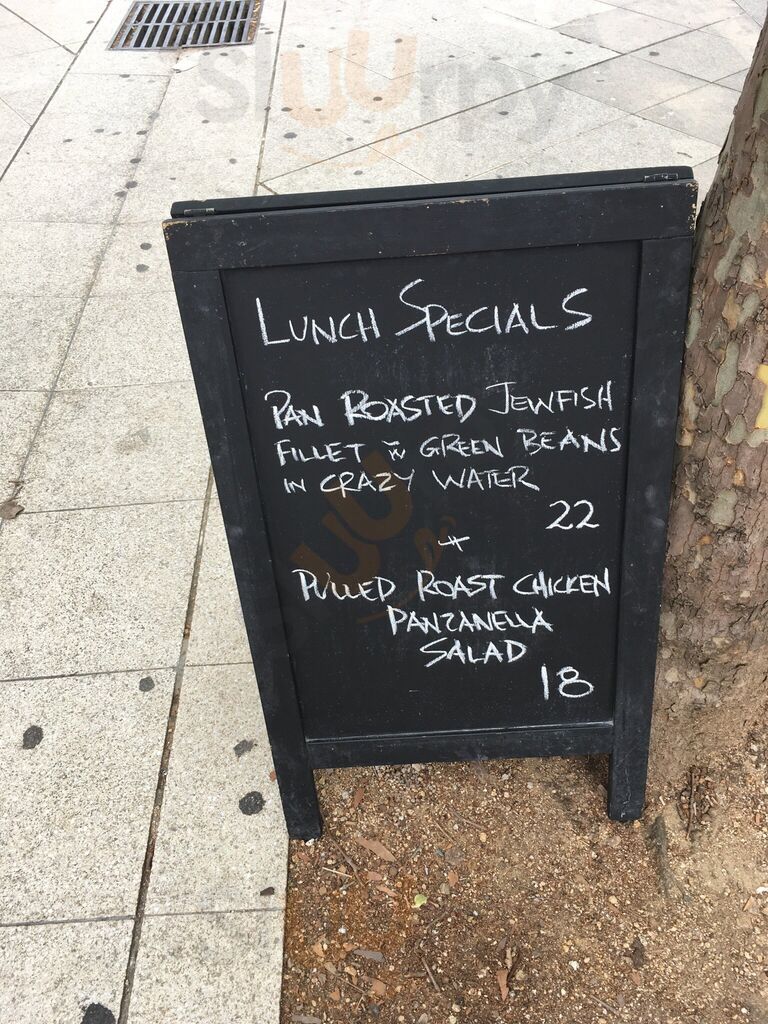 sluurpy
LUNCH SPECIALS
PAN ROASTED JEWFISH
FILLET w GREEN BEANS
IN CRAZY WATER
22
+
PULLED ROAST CHICKEN
PANZANELLA
SALAD
18